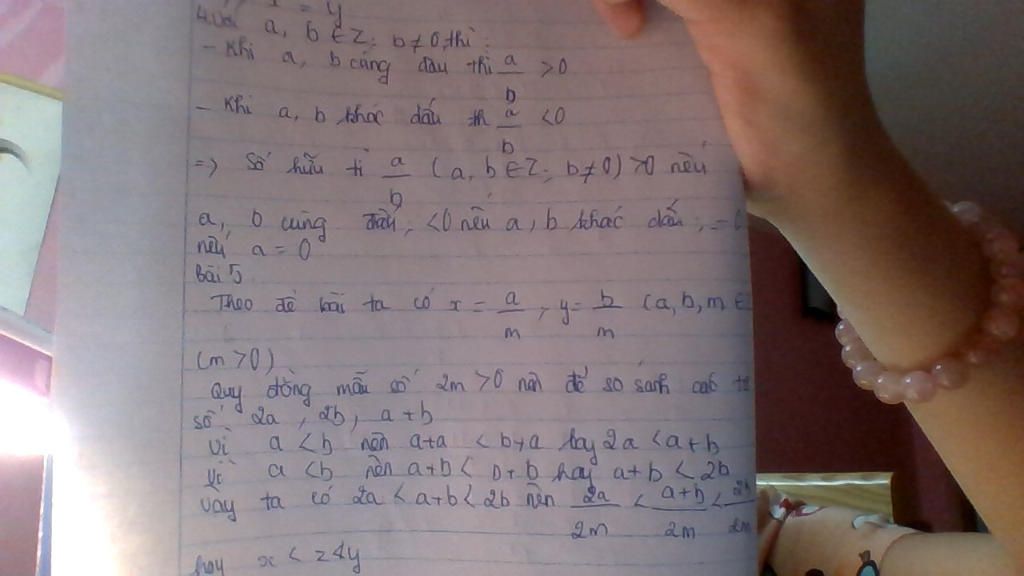 x = y
4. Với a, b ∈ Z; b ≠ 0 thì:
- Khi a, b cùng dấu thì a/b > 0
- Khi a, b khác dấu th a/b < 0
=> Số hữu tỉ a/b (a, b ∈ Z; b ≠ 0) > 0 nếu
a, b cùng dấu; < 0 nếu a, b khác dấu; = 0
nếu a = 0
Bài 5
Theo đề bài ta có x = a/m, y = b/m (a, b, m ∈
(m > 0)
Quy đồng mẫu số 2m > 0 nên để so sánh các
số 2a, 2b, a + b
Vì a < b nên a+a < b+a hay 2a < a+b
Vì a < b nên a+b < b+b hay a+b < 2b
Vậy ta có 2a < a+b < 2b nên 2a/2m < a+b/2m < 2b/2m
hay x < z < y